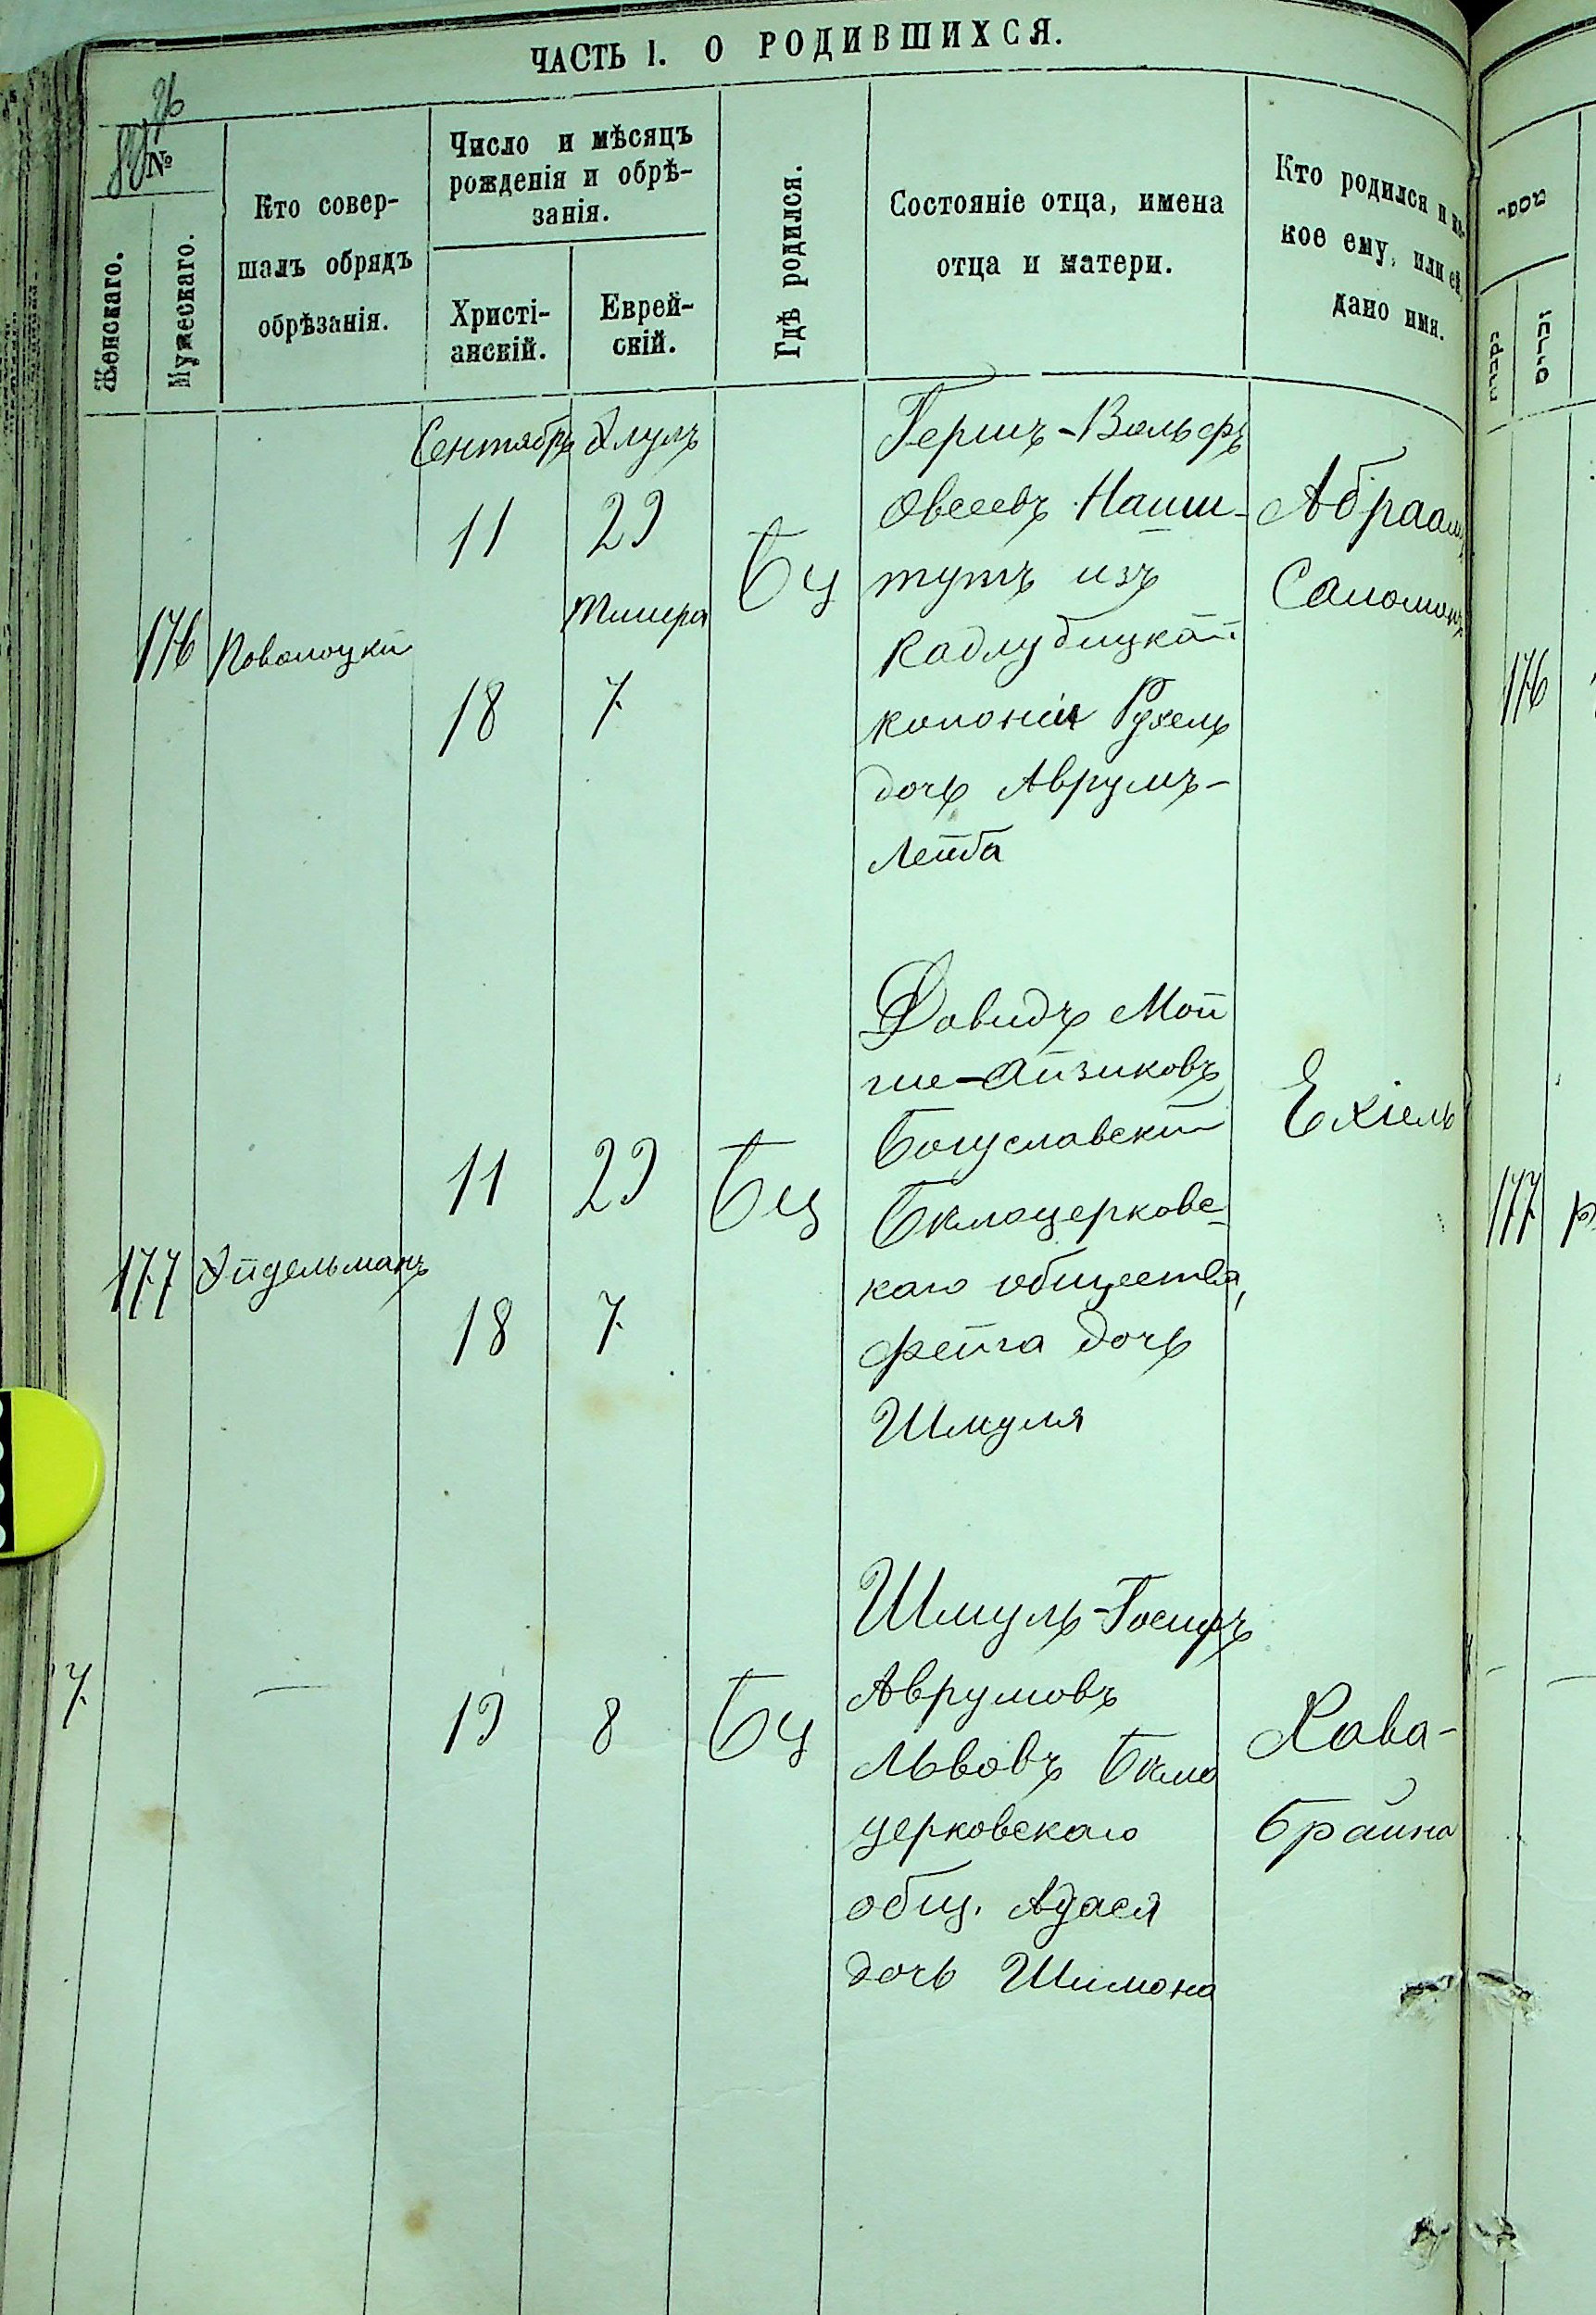 ЧАСТЬ I. О РОДИВШИХСЯ.
№
Женскаго.
Мужескаго.
Кто совер-
шалъ обрядъ
обрѣзанія.
Число и мѣсяцъ
рожденія и обрѣ-
занія.
Христі-
анскій.
Еврей-
скій.
Гдѣ родился.
Состояніе отца, имена
отца и матери.
Кто родился и ка-
кое ему, или ей,
дано имя.
Сентябрь Элулъ
11 29
Тишра
18 7
176 Поволоцкій
Бц
Гершъ-Вольфъ
Овсеевъ Наши-
тутъ изъ
Кадлубицкой
колоніи Рухель
дочь Аврумъ-
Лейба
Абраамъ
Саломонъ
177 Эйдельманъ
11 29
18 7
Бц
Довидъ Мой
ше-Айзиковъ
Богуславскій
Бѣлоцерковс-
каго общества,
Фейга дочь
Шмуля
Ехіель
7
—
19 8 Бц
Шмуль-Іосифъ
Аврумовъ
Львовъ Бѣло
церковскаго
общ. Адася
дочь Шимона
Хава-
Брайна
מספר
נקבות
זכרים
176
177